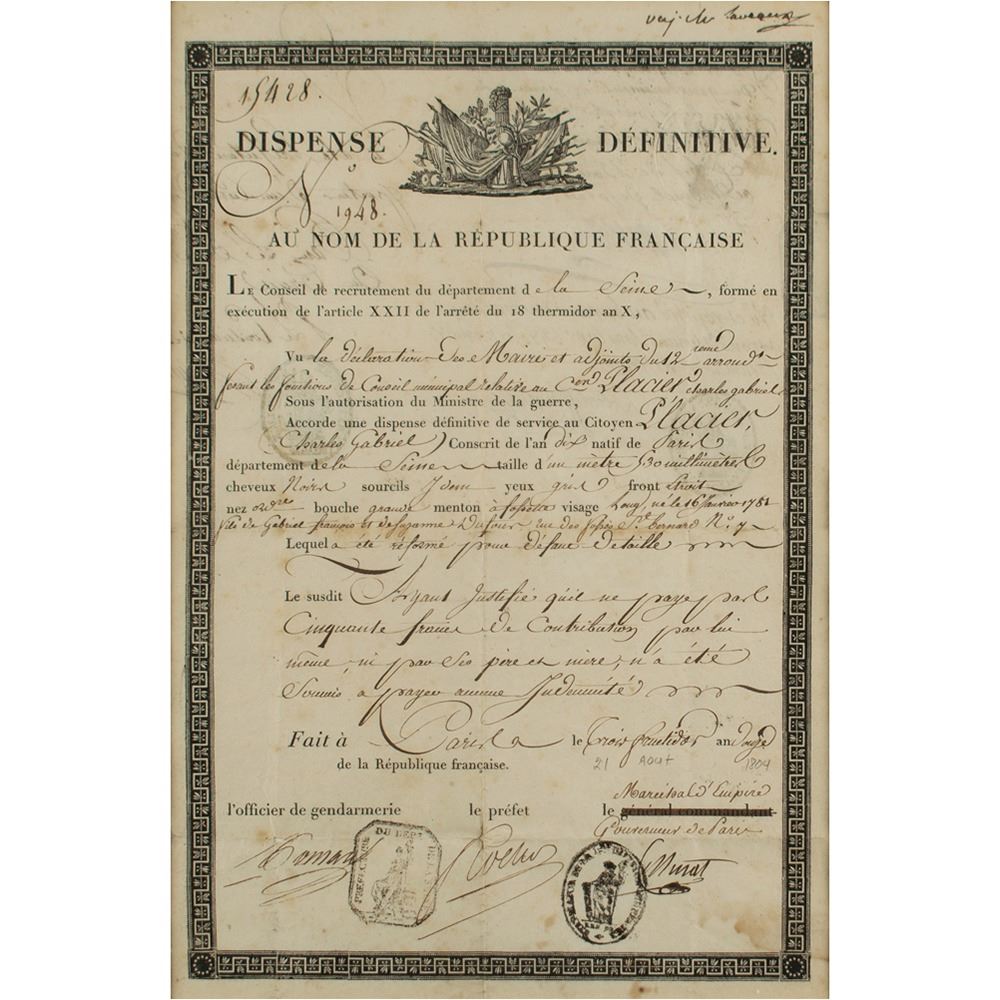 15428.
DISPENSE DÉFINITIVE.
N°
1948.
AU NOM DE LA RÉPUBLIQUE FRANÇAISE
LE Conseil de recrutement du département de la Seine, formé en
exécution de l'article XXII de l'arrêté du 18 thermidor an X,
Vu la déclaration des Maire et adjoints du 12eme arrondt
fesant les fonctions de Conseil municipal relative au Cen Placier charles gabriel
Sous l'autorisation du Ministre de la guerre,
Accorde une dispense définitive de service au Citoyen Placier,
Charles Gabriel) Conscrit de l'an dix natif de Paris
département de la Seine taille d'un mètre 530 millimètres
cheveux Noirs sourcils Idem yeux gris front étroit
nez ordre bouche grande menton à fossette visage Long, né le 16 Janvier 1782
fils de Gabriel françois et de suzanne Dufour rue des fossés St bernard N.° 7
Lequel a été réformé pour défaut de taille
Le susdit Ayant Justifié qu'il ne paye pas
Cinquante francs de Contribution par lui
même, ni par ses père et mère, n'a été
Soumis a payer aucune Indemnité
Fait à Paris le trois fructidor an douze
21 AOUT 1804
de la République française.
Marechal d'Empire
l'officier de gendarmerie le préfet le général commandant
Gouverneur de Paris
Murat